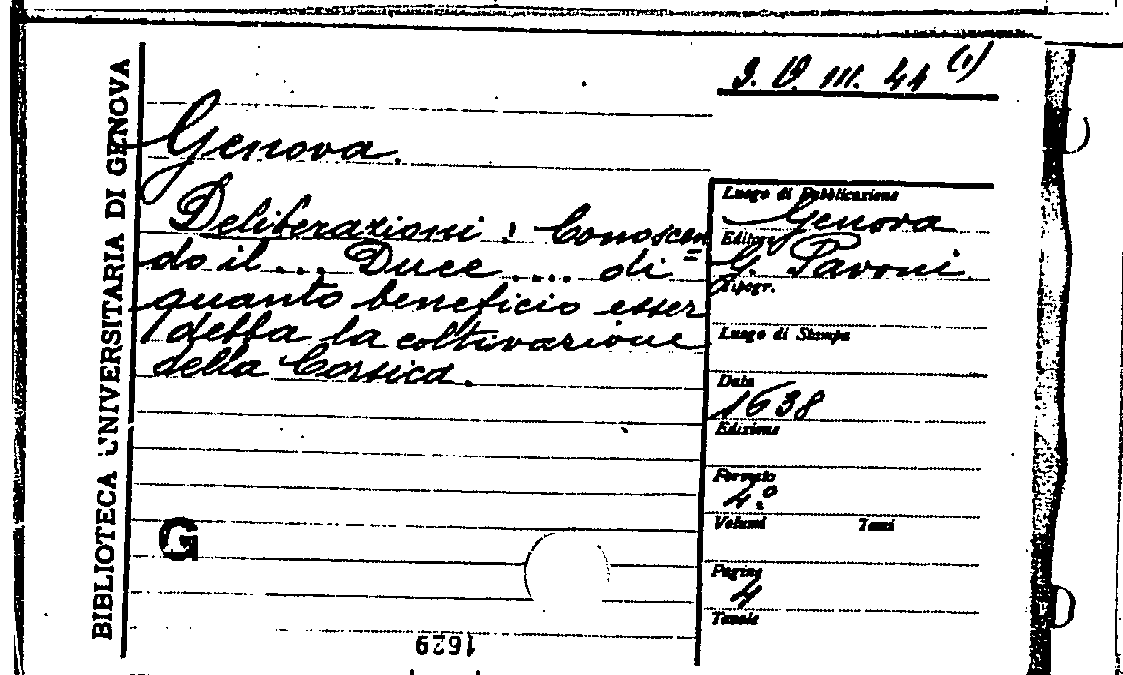 3. V. III. 44 (1)
BIBLIOTECA UNIVERSITARIA DI GENOVA
Genova.
Deliberazioni : Conoscen=
do il ... Duce .... di
quanto beneficio esser
debba la coltivazione
della Corsica.
G
1629
Luogo di Pubblicazione
Genova
Editore
G. Pavoni
Tipogr.
Luogo di Stampa
Data
1638
Edizione
Formato
4.º
Volumi Tomi
Pagine
4
Tavole